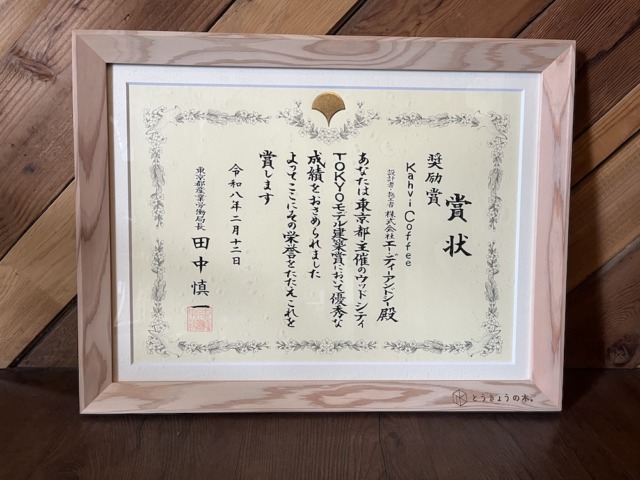 賞状
奨励賞
Kahvi Coffee
設計者・施工者 株式会社エー・ディーアンドシー 殿
あなたは東京都主催のウッドシティ
TOKYOモデル建築賞において優秀な
成績をおさめられました
よってここにその栄誉をたたえこれを
賞します
令和八年二月十二日
東京都産業労働局長
田中慎一
とうきょうの木。